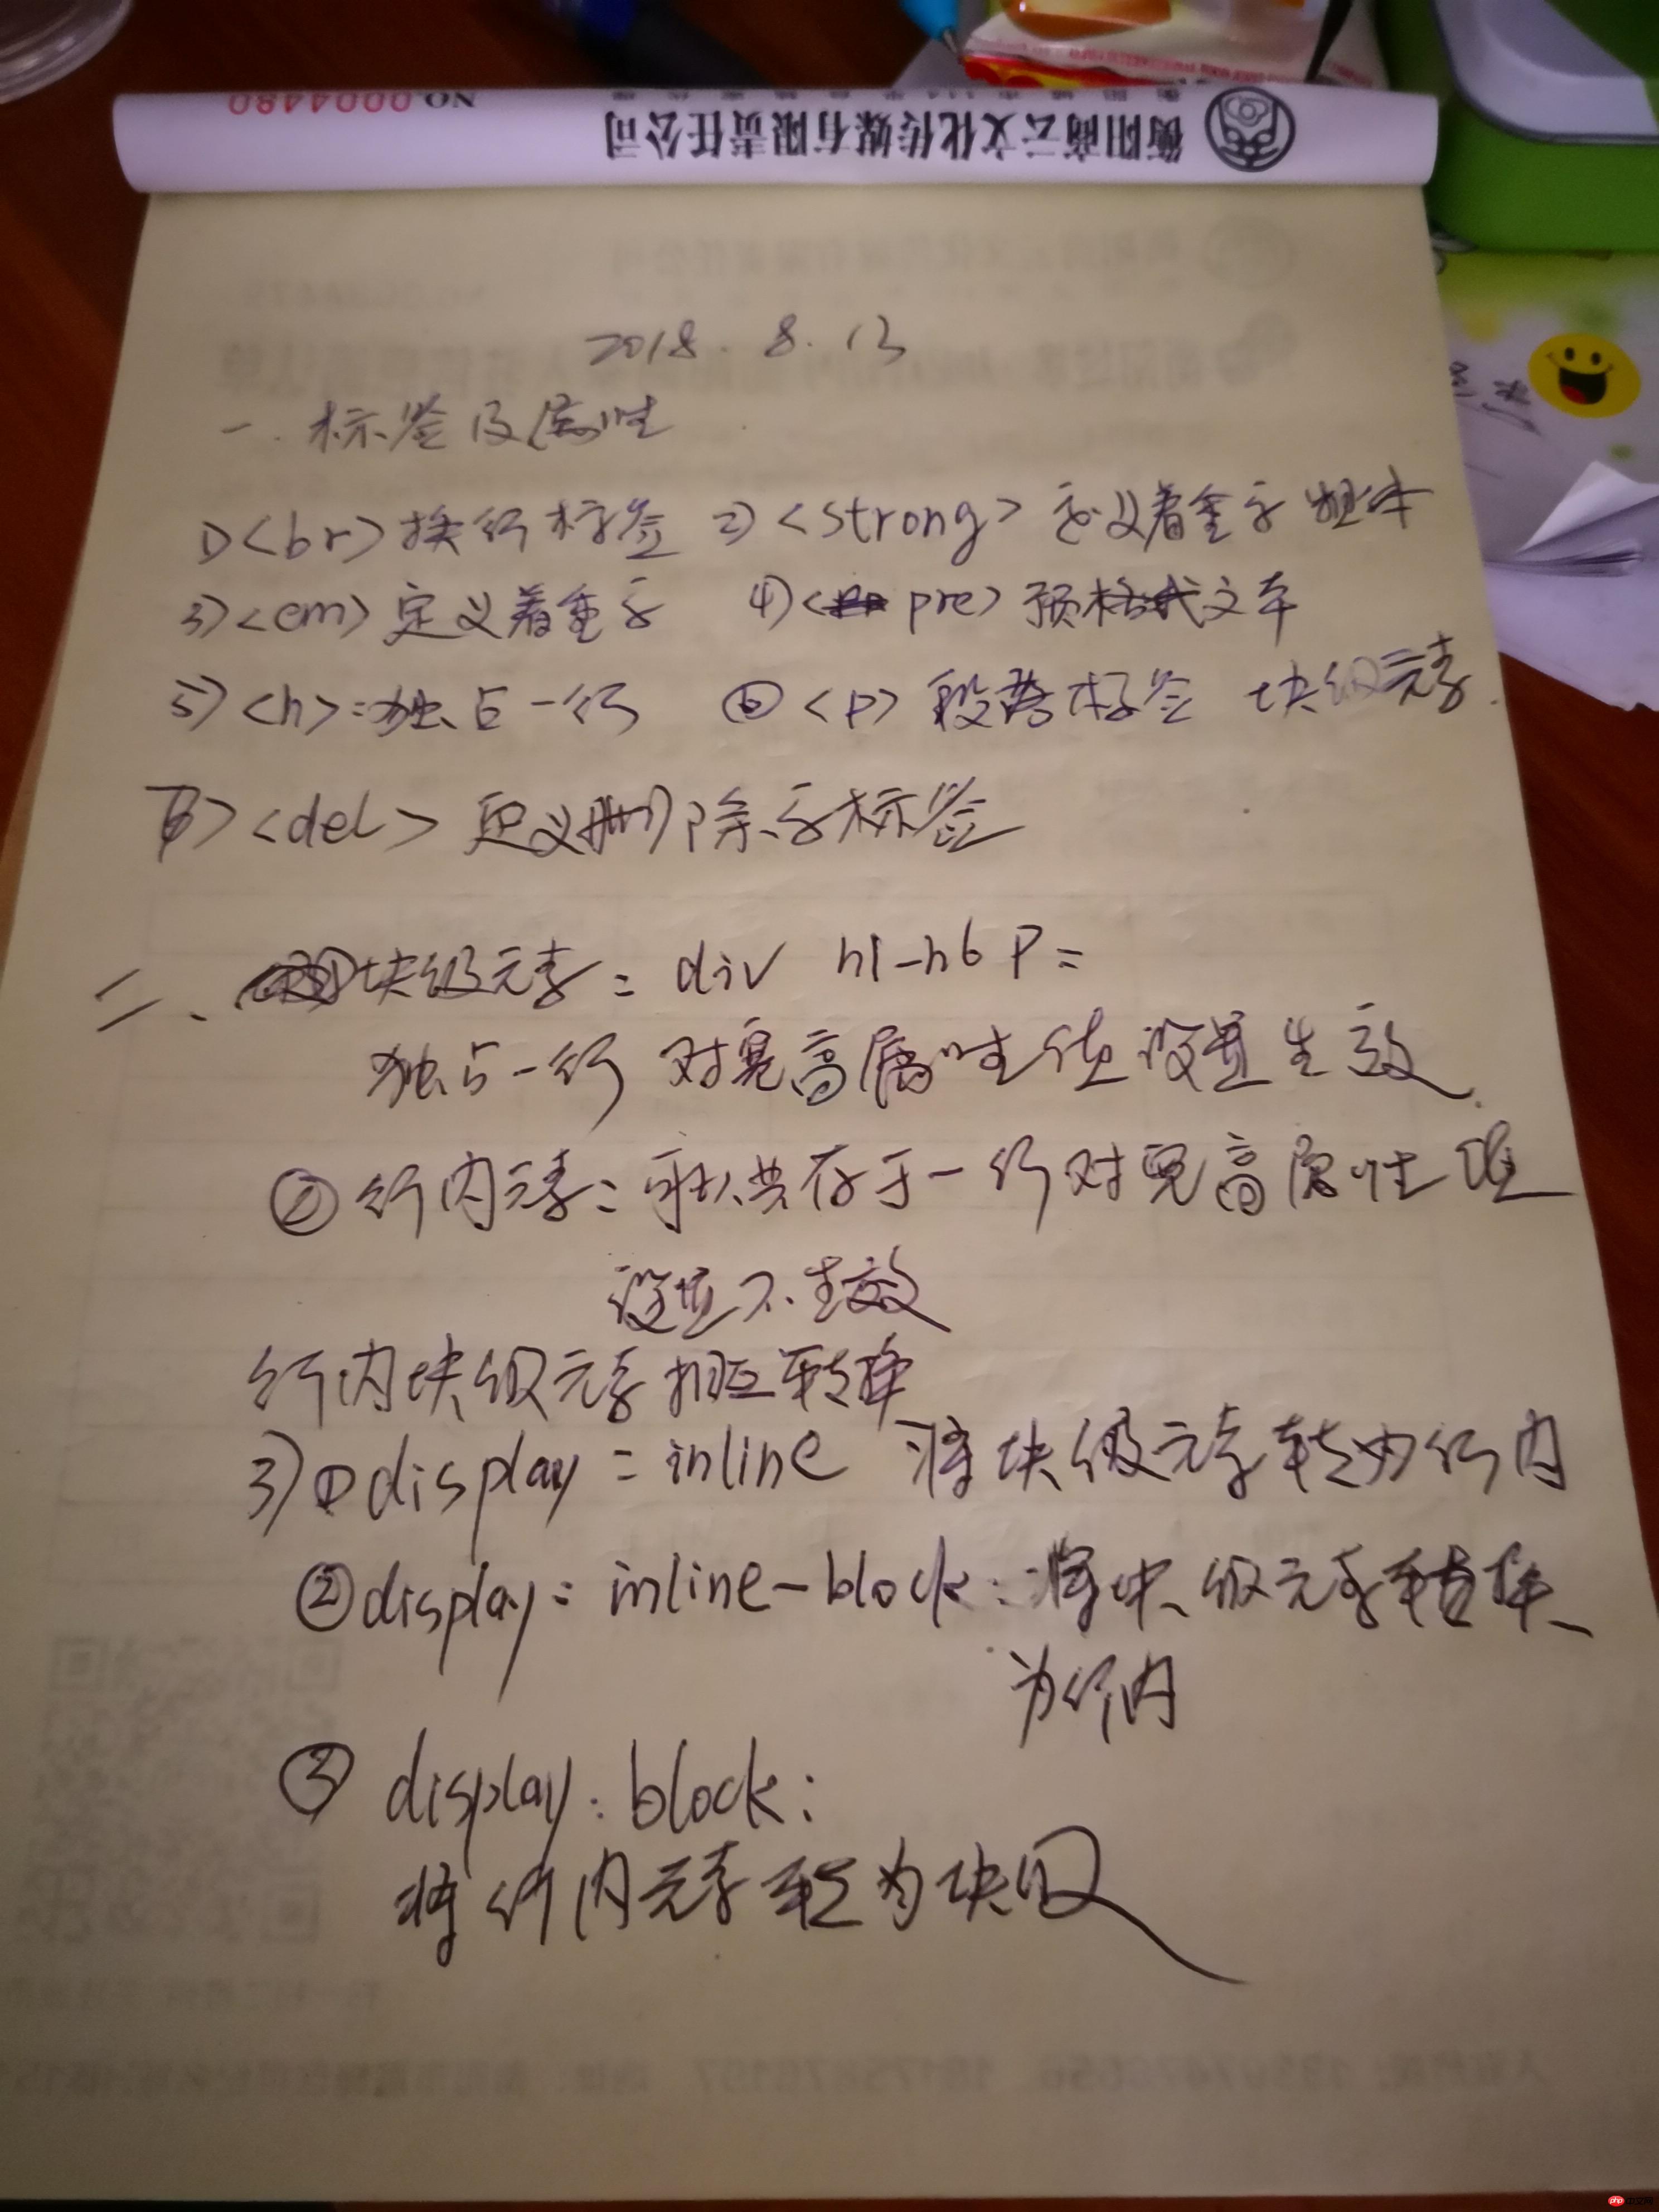 NO.0004480
衡阳商云文化传媒有限责任公司
2018.8.13
一.标签及属性
1)<br>换行标签 2)<strong>定义着重字 粗体
3)<em>定义着重字 4)<pre>预格式文本
5)<h>:独占一行 ⑥<p>段落标签 块级元素.
7)<del>定义删除字标签
二、块级元素: div h1-h6 P:
独占一行 对宽高属性值设置生效.
②行内元素: 可以共存于一行对宽高属性值
设置不生效
行内块级元素相互转换
3)①display:inline 将块级元素转为行内
②display:inline-block:将块级元素转换
为行内
③display:block:
将行内元素转为块级
php中文网